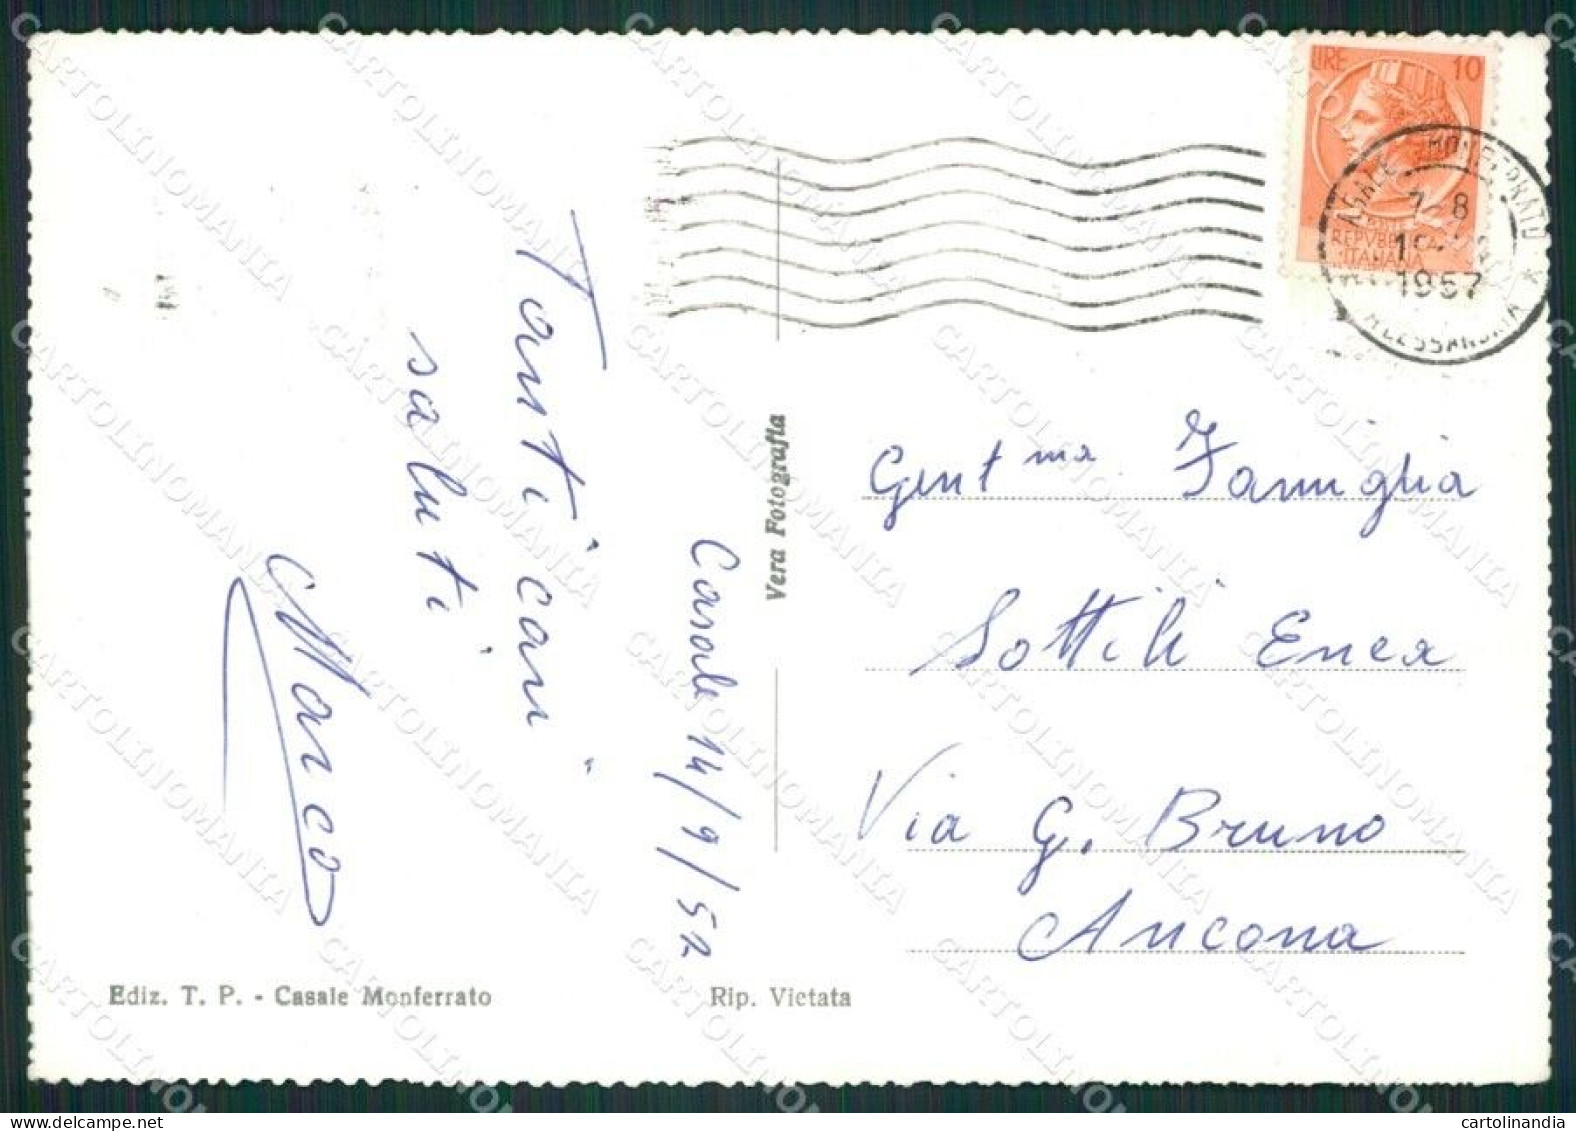 Tanti cari
saluti
Marco
Casale 14/9/57
Vera Fotografia
Ediz. T. P. - Casale Monferrato
Rip. Vietata
LIRE 10
REPVBBLICA
ITALIANA
CASALE MONFERRATO
7-8
1957
ALESSANDRIA
Gent ma Famiglia
Sottili Enea
Via G. Bruno
Ancona
CARTOLINOMANIA
cartolinandia